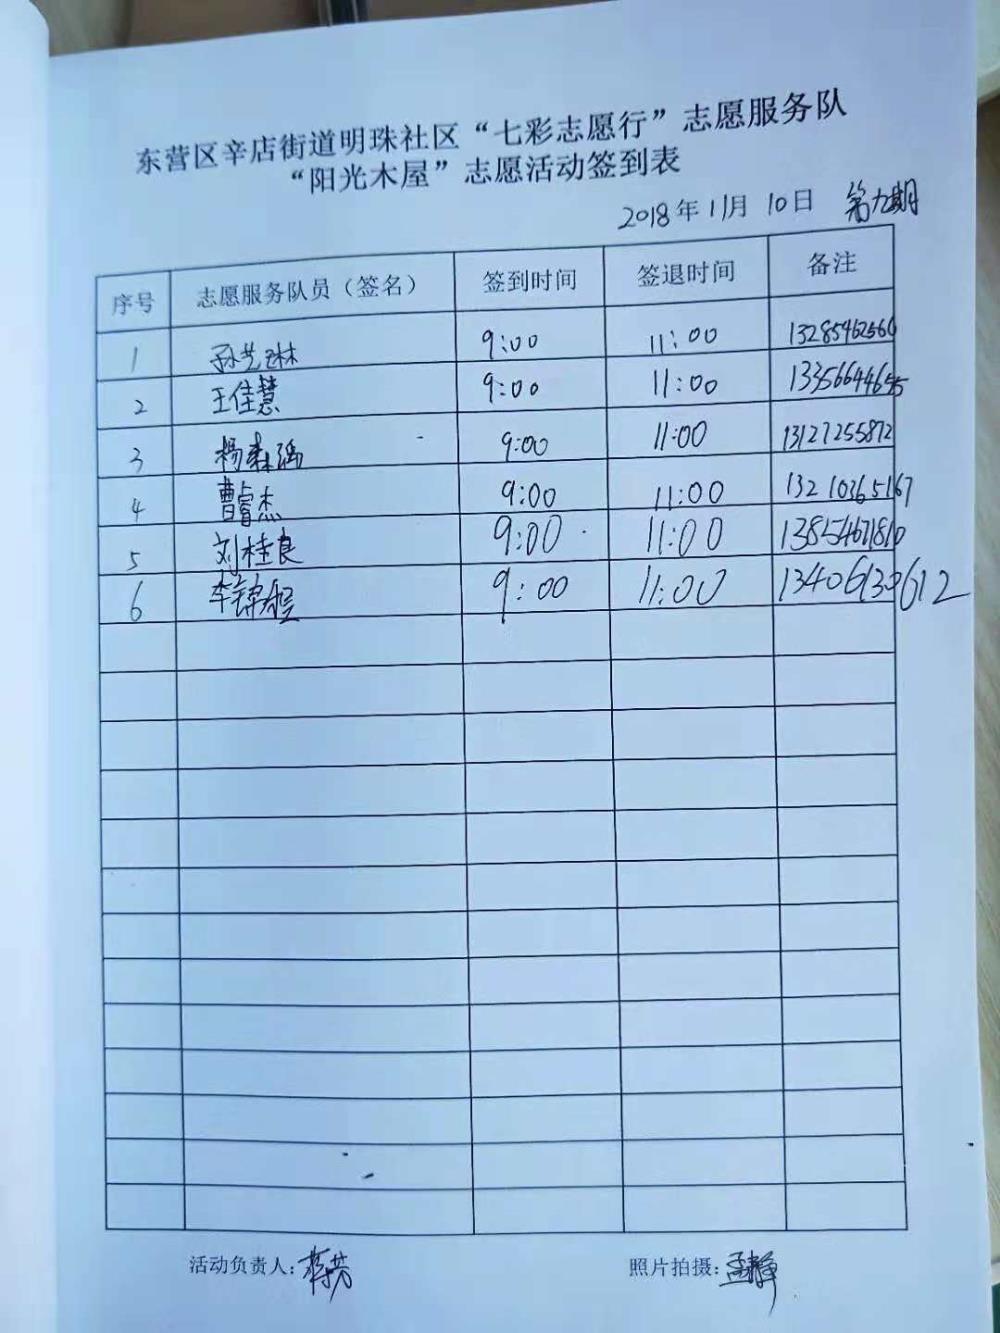 东营区辛店街道明珠社区“七彩志愿行”志愿服务队
“阳光木屋”志愿活动签到表
2018年11月10日 第九期
序号 志愿服务队员（签名） 签到时间 签退时间 备注
1 孙艺琳 9:00 11:00 13285462560
2 王佳慧 9:00 11:00
3 杨森 9:00 11:00 13127255872
4 曹睿杰 9:00 11:00 13210365167
5 刘桂良 9:00 11:00 13854671810
6 李锦程 9:00 11:00 13406130612
活动负责人: 照片拍摄:孟静